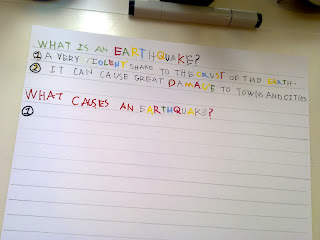 WHAT IS AN EARTHQUAKE?
① A VERY VIOLENT SHAKE TO THE CRUST OF THE EARTH.
② IT CAN CAUSE GREAT DAMAGE TO TOWNS AND CITIES
WHAT CAUSES AN EARTHQUAKE?
①